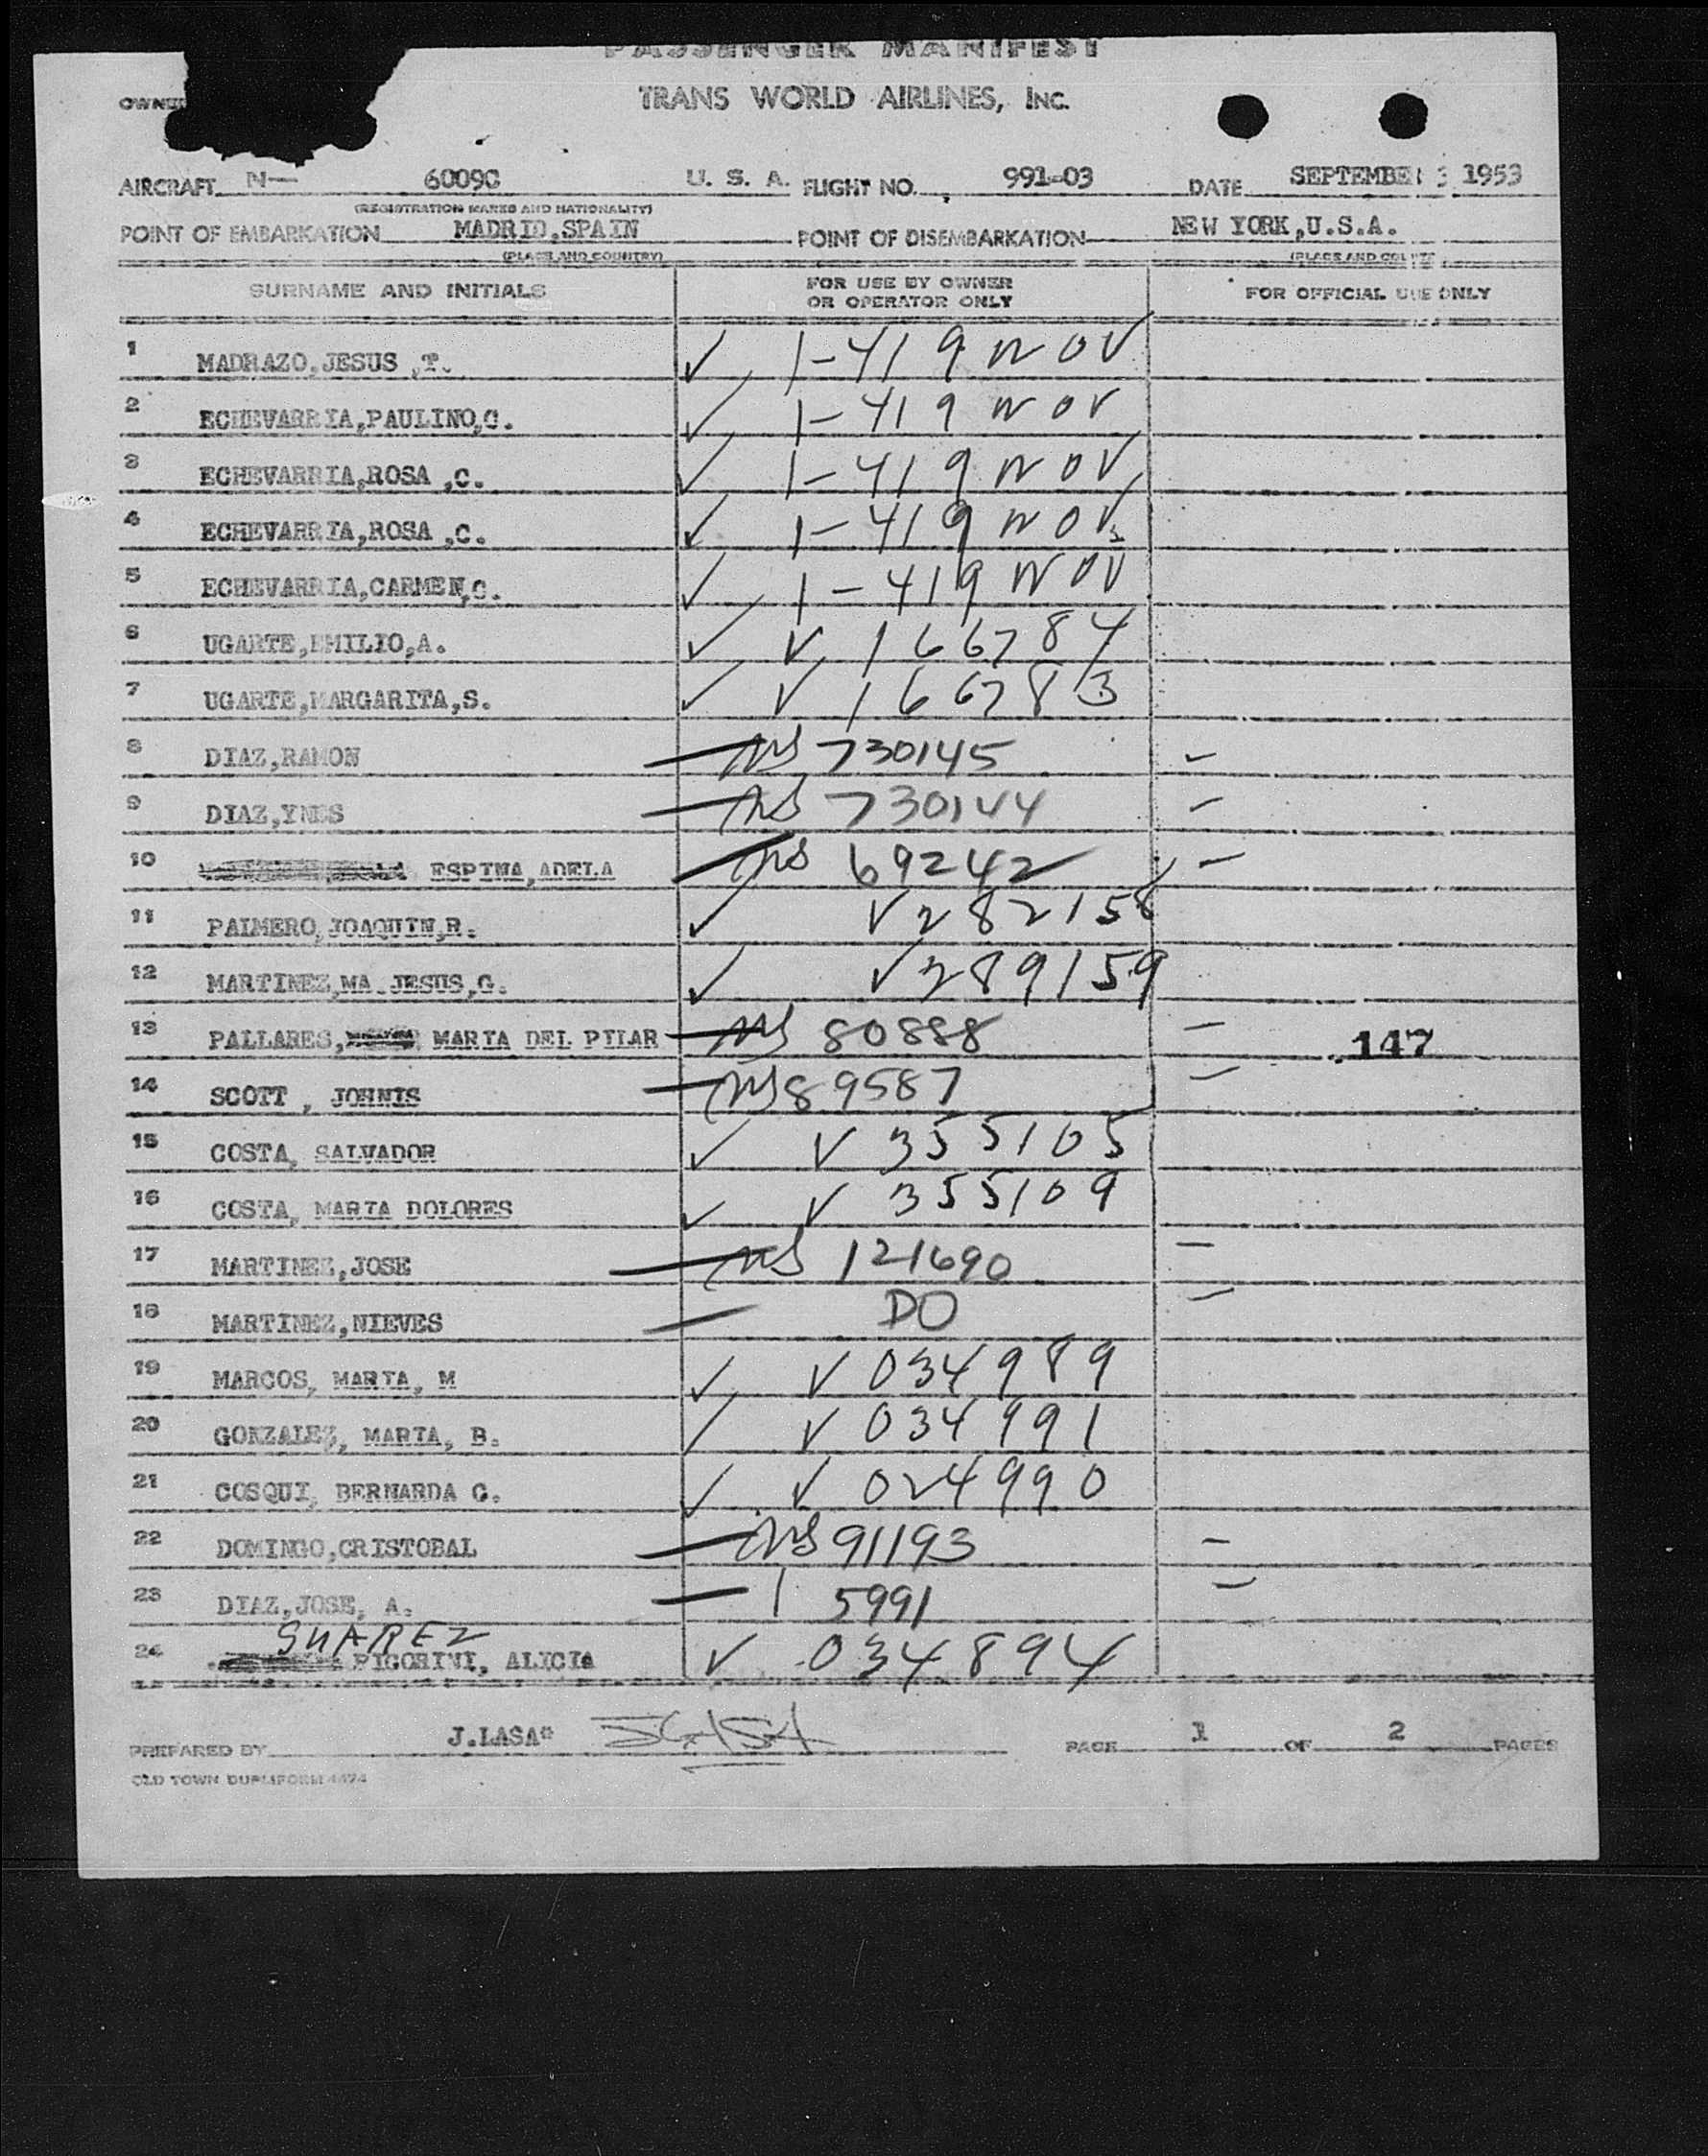 PASSENGER MANIFEST
OWNER
TRANS WORLD AIRLINES, INC.
AIRCRAFT N— 6009C U. S. A. FLIGHT NO. 991-03 DATE SEPTEMBER 3 1953
(REGISTRATION MARKS AND NATIONALITY)
POINT OF EMBARKATION MADRID,SPAIN POINT OF DISEMBARKATION NEW YORK,U.S.A.
(PLACE AND COUNTRY) (PLACE AND COUNTRY)
SURNAME AND INITIALS FOR USE BY OWNER OR OPERATOR ONLY FOR OFFICIAL USE ONLY
1 MADRAZO,JESUS ,T. ✓ 1-419 NOV
2 ECHEVARRIA,PAULINO,C. ✓ 1-419 NOV
3 ECHEVARRIA,ROSA ,C. ✓ 1-419 NOV
4 ECHEVARRIA,ROSA ,C. ✓ 1-419 NOV
5 ECHEVARRIA,CARMEN,C. ✓ 1-419 NOV
6 UGARTE,EMILIO,A. ✓ V 166784
7 UGARTE,MARGARITA,S. ✓ V 166783
8 DIAZ,RAMON — 730145 —
9 DIAZ,YNES — 730144 —
10 ESPINA,ADELA — 69242 —
11 PALMERO,JOAQUIN,R. ✓ V 282158
12 MARTINEZ,MA.JESUS,G. ✓ V 289159
13 PALLARES, MARIA DEL PILAR — 80888 — 147
14 SCOTT , JOHNIS — 89587 —
15 COSTA, SALVADOR ✓ V 355105
16 COSTA, MARIA DOLORES ✓ V 355109
17 MARTINEZ,JOSE — 121690 —
18 MARTINEZ,NIEVES — DO —
19 MARCOS, MARIA, M ✓ V 034989
20 GONZALEZ, MARIA, B. / V 034991
21 COSQUI, BERNARDA C. ✓ V 024990
22 DOMINGO,CRISTOBAL — 91193 —
23 DIAZ,JOSE, A. — 1 5991 —
SUAREZ
24 PIGORINI, ALICIA V 034894
PREPARED BY J.LASA PAGE 1 OF 2 PAGES
OLD TOWN DUPLIFORM 4474